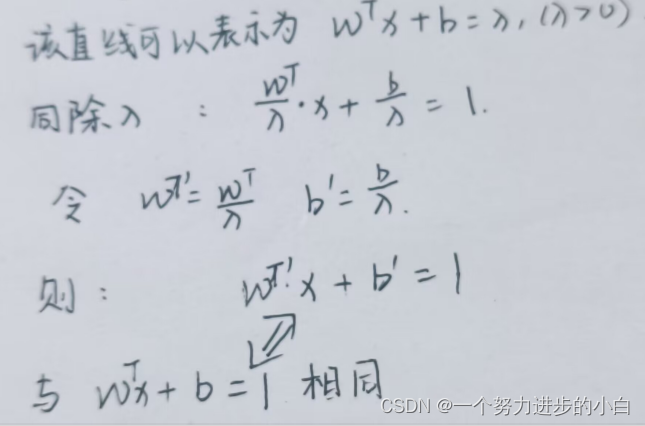 该直线可以表示为 wᵀx + b = λ, (λ>0)
同除λ : wᵀ/λ · x + b/λ = 1.
令 wᵀ' = wᵀ/λ b' = b/λ.
则: wᵀ'x + b' = 1
与 wᵀx + b = 1 相同
CSDN @一个努力进步的小白